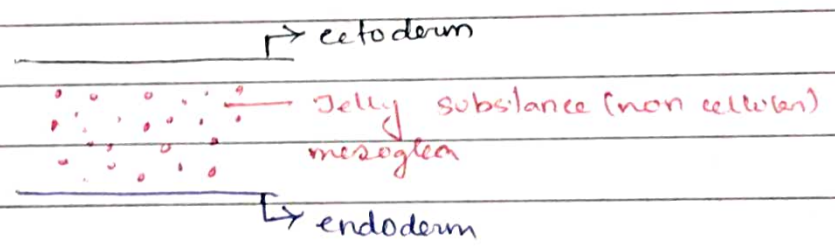 ectoderm
Jelly substance (non cellular)
mesoglea
endoderm